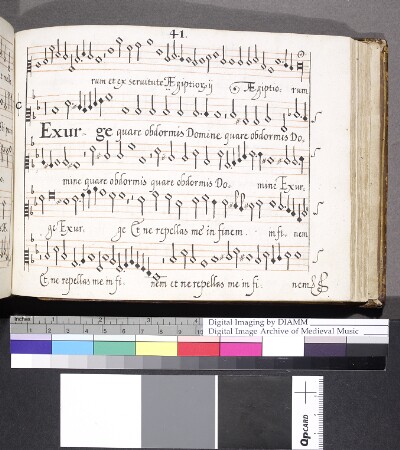 41.
rum et ex seruitute Ægiptior, ij Ægiptio. rum
Exur. ge quare obdormis Domine quare obdormis Do.
mine quare obdormis quare obdormis Do. mine Exur.
ge Exur. ge Et ne repellas me in finem. in fi. nem
Et ne repellas me in fi. nem et ne repellas me in fi. nem
inches 1 2 3 4
Digital Imaging by DIAMM
Digital Image Archive of Medieval Music
QPCARD